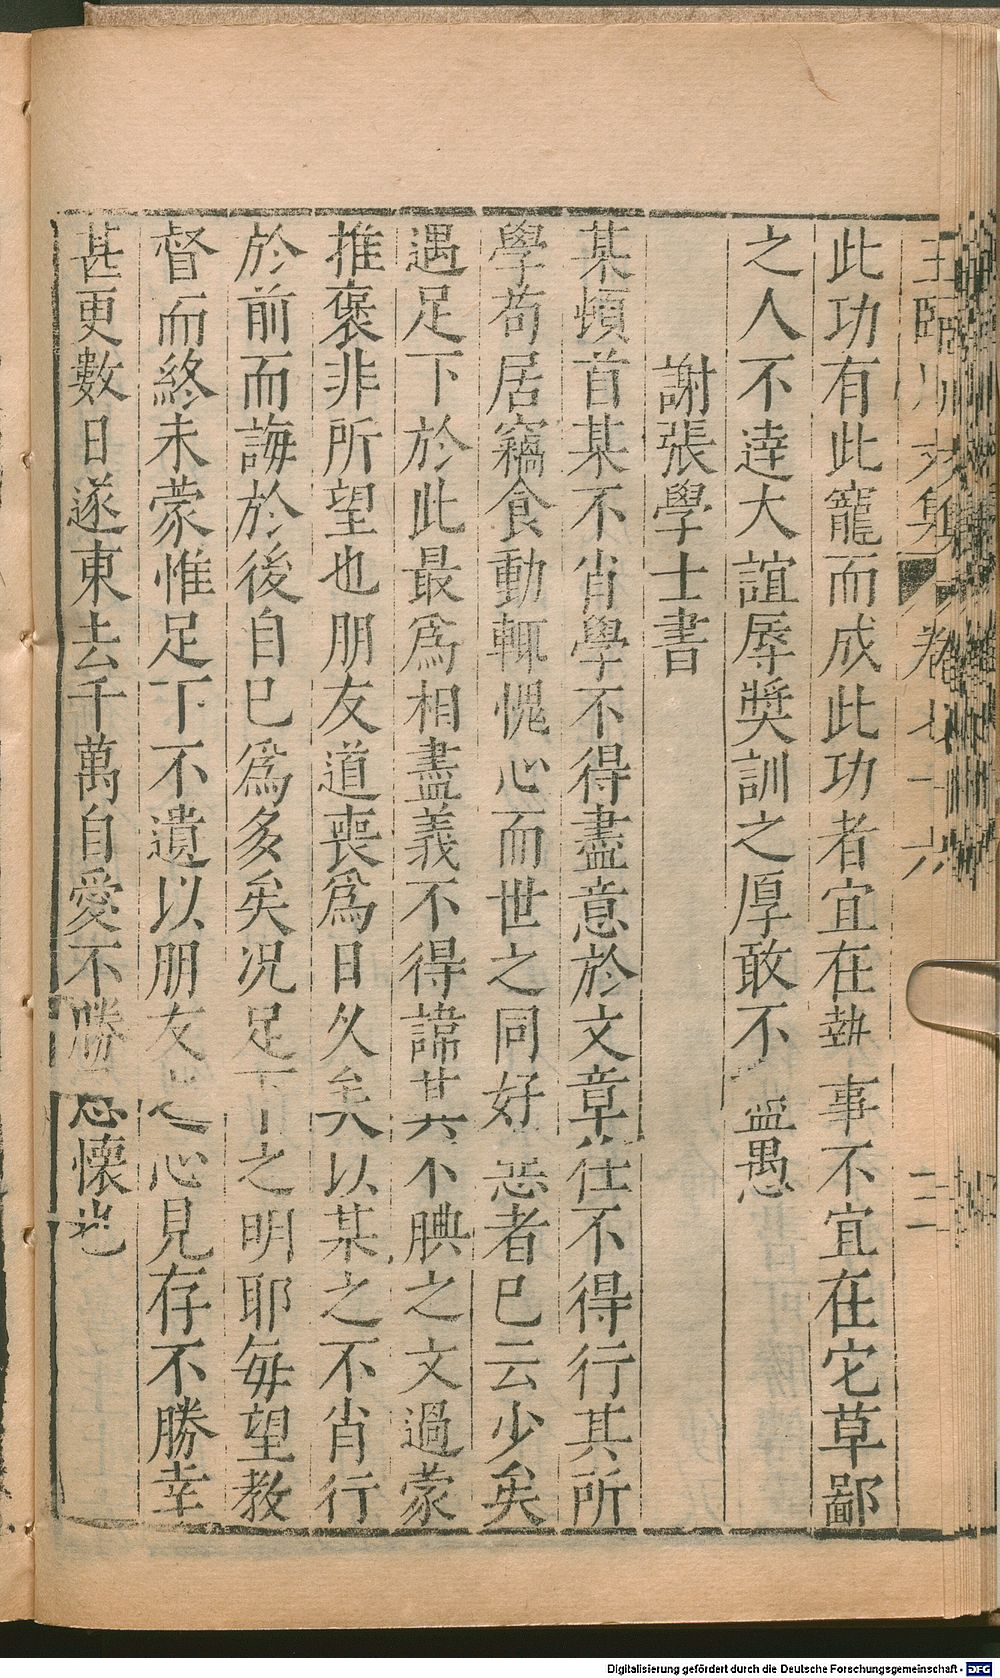 王臨川文集 卷七十六 三
此功有此寵而成此功者宜在執事不宜在它草鄙
之人不達大誼辱奬訓之厚敢不 盡愚
謝張學士書
某頓首某不肖學不得盡意於文章仕不得行其所
學苟居竊食動輒愧心而世之同好惡者已云少矣
遇足下於此最爲相盡義不得諱其不腆之文過蒙
推褒非所望也朋友道喪爲日久矣以某之不肖行
於前而誨於後自已爲多矣况足下之明耶每望教
督而終未蒙惟足下不遺以朋友之心見存不勝幸
甚更數日遂東去千萬自愛不勝 懷也
Digitalisierung gefördert durch die Deutsche Forschungsgemeinschaft - DFG